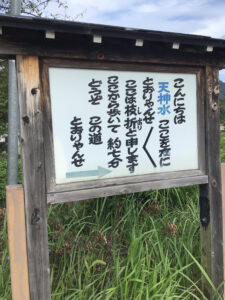 こんにちは
天神水 ここを左に
とおりゃんせ
ここは枝折と申します
ここから歩いて 約七分
どうぞ この道
とおりゃんせ